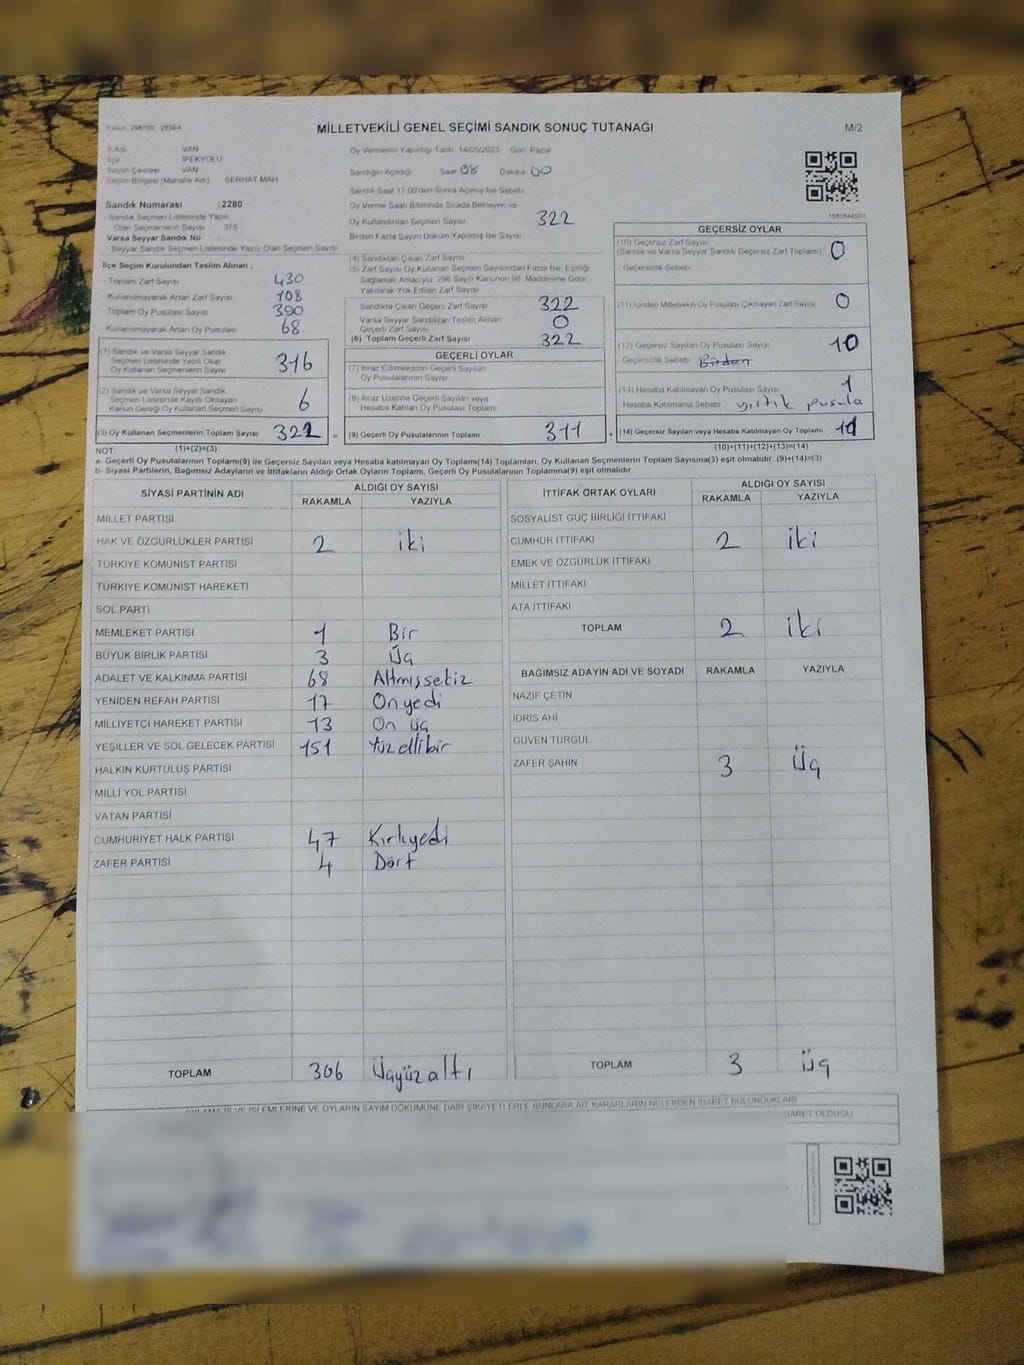 MİLLETVEKİLİ GENEL SEÇİMİ SANDIK SONUÇ TUTANAĞI
M/2
İl Adı: VAN
İlçe İPEKYOLU
Seçim Çevresi VAN
Seçim Bölgesi (Mahalle Adı) SERHAT MAH
Sandık Numarası :2280
- Sandık Seçmen Listesinde Yazılı
Olan Seçmenlerin Sayısı 375
Varsa Seyyar Sandık No :
- Seyyar Sandık Seçmen Listesinde Yazılı Olan Seçmen Sayısı
Oy Vermenin Yapıldığı Tarih 14/05/2023 Gün Pazar
Sandığın Açıldığı Saat 08 Dakika 00
Sandık Saat 17.00'den Sonra Açılmış İse Sebebi
Oy Verme Saati Bitiminde Sırada Bekleyen ve
Oy Kullandırılan Seçmen Sayısı 322
Birden Fazla Sayım Döküm Yapılmış İse Sayısı
İlçe Seçim Kurulundan Teslim Alınan ;
- Toplam Zarf Sayısı 430
- Kullanılmayarak Artan Zarf Sayısı 108
- Toplam Oy Pusulası Sayısı 390
- Kullanılmayarak Artan Oy Pusulası 68
(1) Sandık ve Varsa Seyyar Sandık
Seçmen Listesinde Yazılı Olup
Oy Kullanan Seçmenlerin Sayısı 316
(2) Sandık ve Varsa Seyyar Sandık
Seçmen Listesinde Kayıtlı Olmayan
Kanun Gereği Oy Kullanan Seçmen Sayısı 6
(3) Oy Kullanan Seçmenlerin Toplam Sayısı 322
(1)+(2)=(3)
(4) Sandıktan Çıkan Zarf Sayısı
(5) Zarf Sayısı Oy Kullanan Seçmen Sayısından Fazla İse, Eşitliği
Sağlamak Amacıyla, 298 Sayılı Kanunun 98. Maddesine Göre
Yakılarak Yok Edilen Zarf Sayısı
Sandıkta Çıkan Geçerli Zarf Sayısı 322
Varsa Seyyar Sandıktan Teslim Alınan
Geçerli Zarf Sayısı 0
(6) Toplam Geçerli Zarf Sayısı 322
GEÇERLİ OYLAR
(7) İtiraz Edilmeksizin Geçerli Sayılan
Oy Pusulalarının Sayısı
(8) İtiraz Üzerine Geçerli Sayılan veya
Hesaba Katılan Oy Pusulası Toplamı
(9) Geçerli Oy Pusulalarının Toplamı 311
GEÇERSİZ OYLAR
(10) Geçersiz Zarf Sayısı
(Sandık ve Varsa Sandık Geçersiz Zarf Toplamı) 0
- Geçersizlik Sebebi
(11) İçinden Milletvekili Oy Pusulası Çıkmayan Zarf Sayısı 0
(12) Geçersiz Sayılan Oy Pusulası Sayısı 10
Geçersizlik Sebebi
(13) Hesaba Katılmayan Oy Pusulası Sayısı 1
Hesaba Katılmama Sebebi yırtık pusula
(14) Geçersiz Sayılan veya Hesaba Katılmayan Oy Toplamı 11
(10)+(11)+(12)+(13)=(14)
NOT:
a- Geçerli Oy Pusulalarının Toplamı(9) ile Geçersiz Sayılan veya Hesaba katılmayan Oy Toplamı(14) Toplamları, Oy Kullanan Seçmenlerin Toplam Sayısına(3) eşit olmalıdır. (9)+(14)=(3)
b- Siyasi Partilerin, Bağımsız Adayların ve İttifakların Aldığı Ortak Oyların Toplamı, Geçerli Oy Pusulalarının Toplamına(9) eşit olmalıdır.
SİYASİ PARTİNİN ADI ALDIĞI OY SAYISI
RAKAMLA YAZIYLA
MİLLET PARTİSİ
HAK VE ÖZGÜRLÜKLER PARTİSİ 2 iki
TÜRKİYE KOMÜNİST PARTİSİ
TÜRKİYE KOMÜNİST HAREKETİ
SOL PARTİ
MEMLEKET PARTİSİ 1 Bir
BÜYÜK BİRLİK PARTİSİ 3 Üç
ADALET VE KALKINMA PARTİSİ 68 Altmışsekiz
YENİDEN REFAH PARTİSİ 17 On yedi
MİLLİYETÇİ HAREKET PARTİSİ 13 On üç
YEŞİLLER VE SOL GELECEK PARTİSİ 151 Yüz ellibir
HALKIN KURTULUŞ PARTİSİ
MİLLİ YOL PARTİSİ
VATAN PARTİSİ
CUMHURİYET HALK PARTİSİ 47 Kırkyedi
ZAFER PARTİSİ 4 Dört
TOPLAM 306 Üçyüz altı
İTTİFAK ORTAK OYLARI ALDIĞI OY SAYISI
RAKAMLA YAZIYLA
SOSYALİST GÜÇ BİRLİĞİ İTTİFAKI
CUMHUR İTTİFAKI 2 iki
EMEK VE ÖZGÜRLÜK İTTİFAKI
MİLLET İTTİFAKI
ATA İTTİFAKI
TOPLAM 2 iki
BAĞIMSIZ ADAYIN ADI VE SOYADI RAKAMLA YAZIYLA
NAZİF ÇETİN
İDRİS AHİ
GÜVEN TURGUL
ZAFER ŞAHİN 3 Üç
TOPLAM 3 üç
OYLAMA İŞ VE İŞLEMLERİNE VE OYLARIN SAYIM DÖKÜMÜNE DAİR ŞİKAYETLERLE BUNLARA AİT KARARLARIN NELERDEN İBARET BULUNDUKLARI
İBARET OLDUĞU